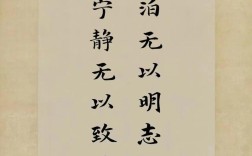 泊无以明志
宁静无以致